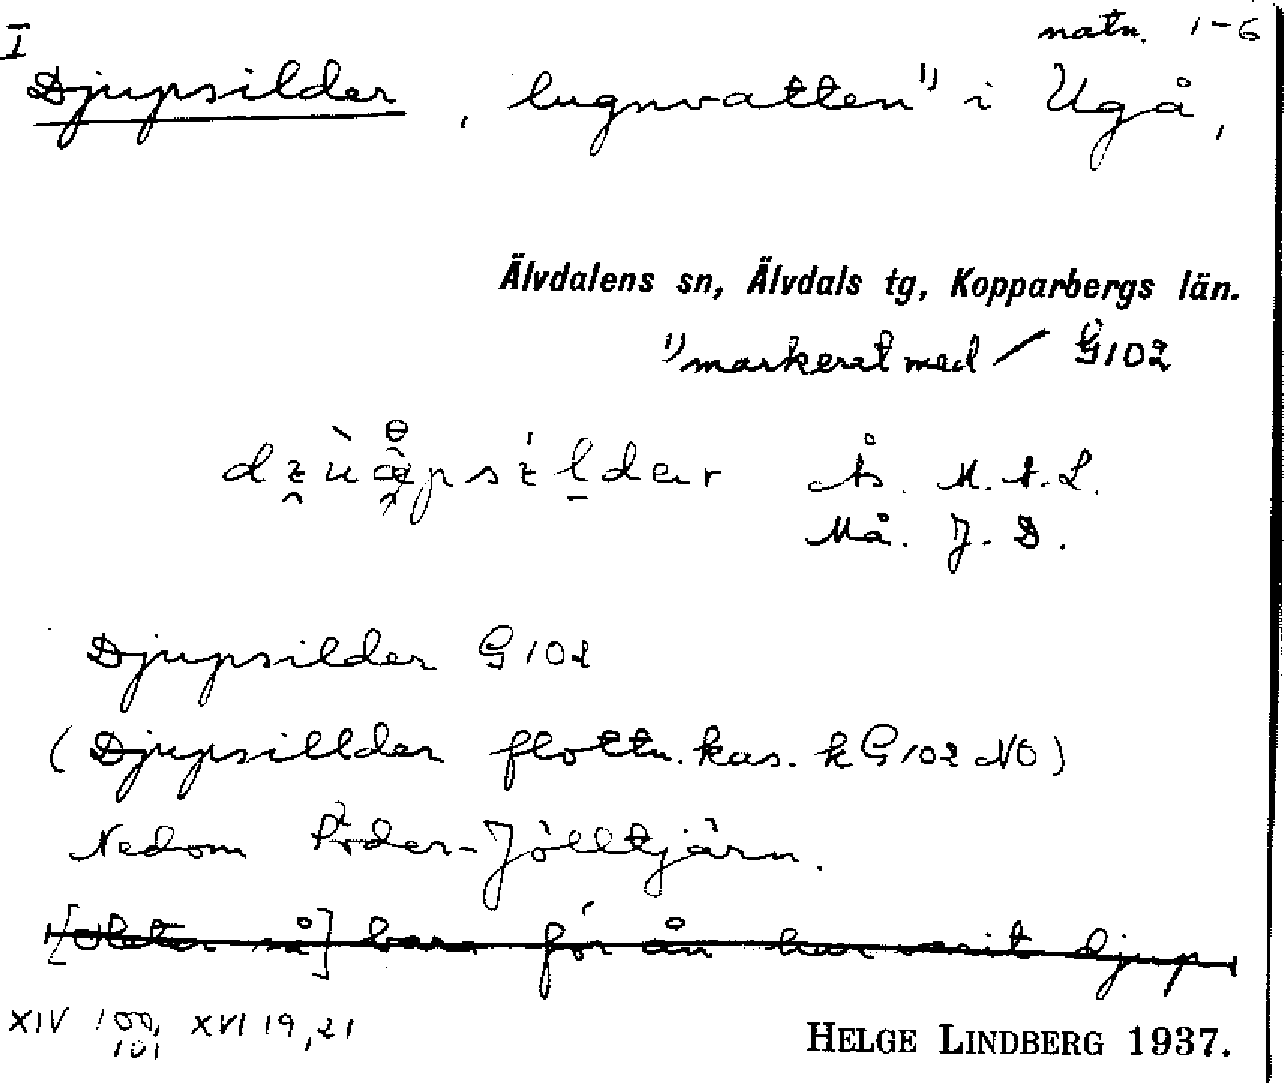 I
natn. 1-6
Djupsilder, lugnvatten¹⁾ i Ugå,
Älvdalens sn, Älvdals tg, Kopparbergs län.
¹⁾ markerat med / G102
Ås. M.A.L.
Må. J. D.
Djupsilder G102
(Djupsillder flottn. kas. k G102 NO)
Nedom Jölltjärn.
[Heter så] bara för ån har varit djup
XIV 100, 101 XVI 19, 21
HELGE LINDBERG 1937.